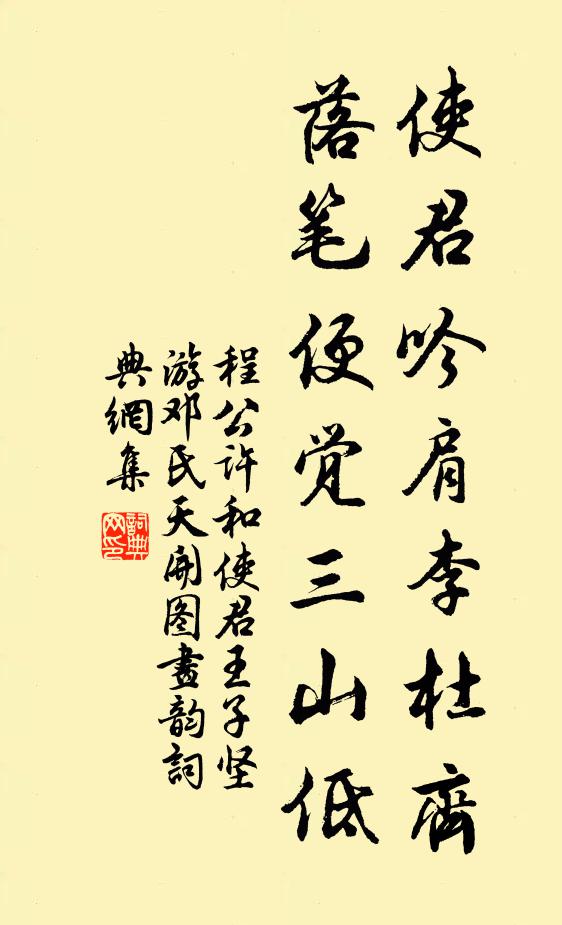 使君吟肩李杜齊
落笔便觉三山低
程公许和使君王子坚
游邓氏天開图畫韵詞
典網集
詞典
网印